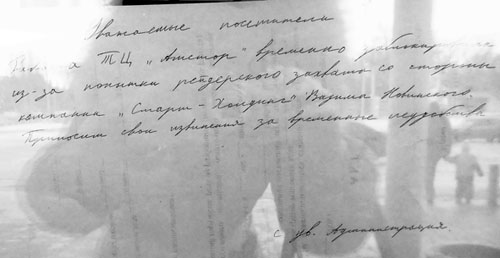 Уважаемые посетители
ТЦ „Амстор" временно заблокирована
из-за попытки рейдерского захвата со стороны
компании „Смарт-Холдинг" Вадима Новинского.
Приносим свои извинения за временные неудобства
с ув. Администрация.